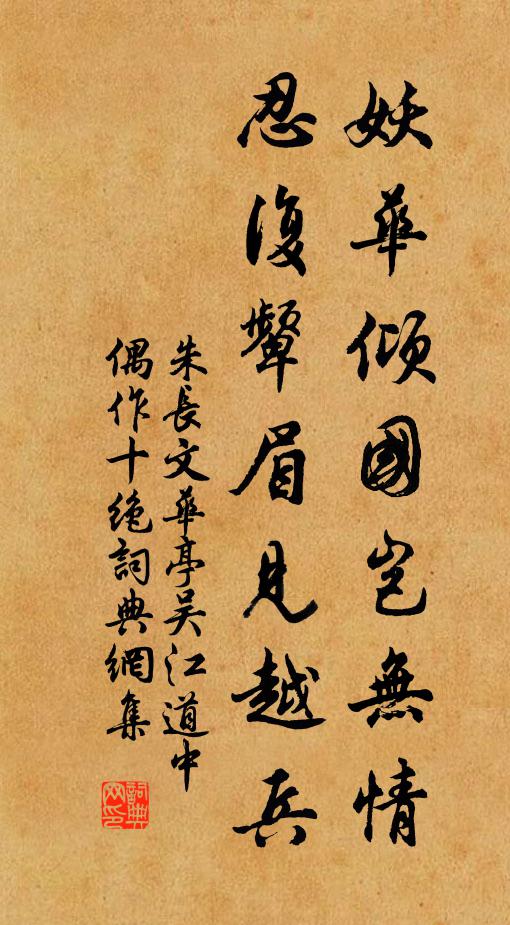 妖華傾國豈無情
忍復顰眉見越兵
朱長文華亭吴江道中
偶作十绝詞典網集
詞典网印